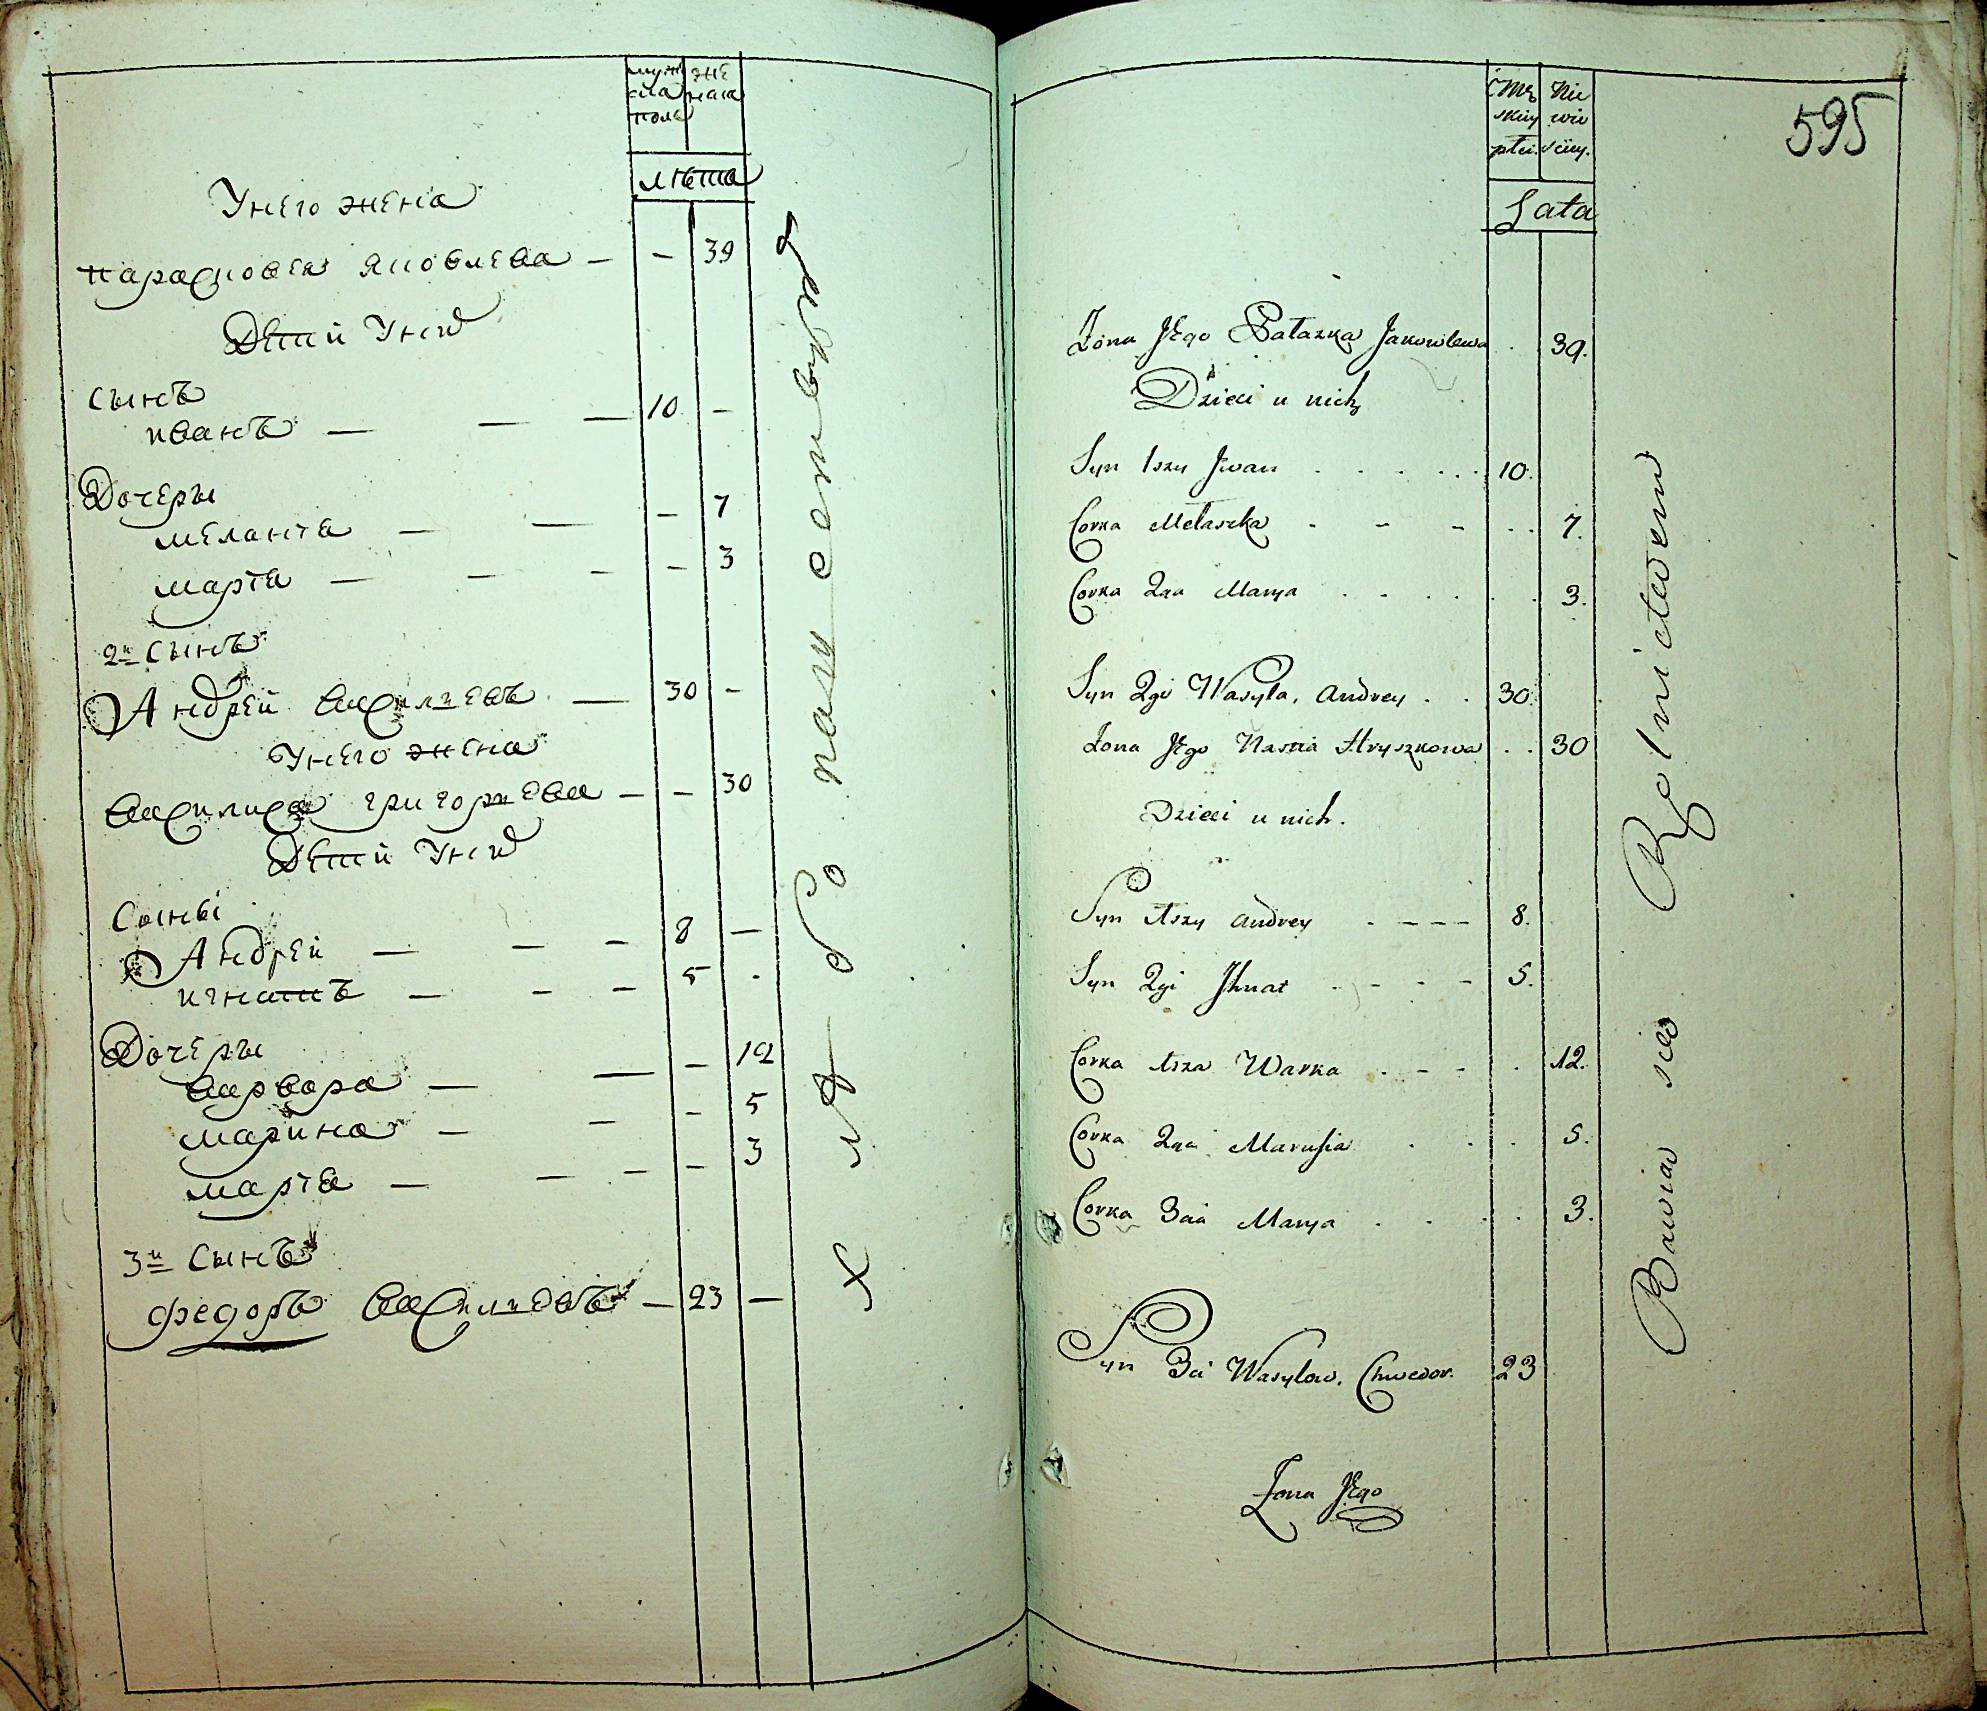 муж
ска
пола
же
нска
лѣта
Унего жена
парасковея яковлева — — 39
Дѣтй Уних
сынъ
иванъ — — — 10 —
Дочеры
меланія — — — 7
марѳа — — — — 3
2й сынъ
Андрей василиевъ — 30 —
Унего жена
василиса григориева — — 30
Дѣтй Уних
сыны
Андрей — — — 8 —
игнатъ — — — 5 -
Дочеры
варвора — — — 12
марина — — — 5
марѳа — — — — 3
3й сынъ
федоръ василиевъ — 23 —
хлебопашествует
595
Męskiey płci
Niewieściey.
Lata
Żona Jego Pałazka Jakowlewa . 39.
Dzieci u nich
Syn 1szy Jwan . . . . . 10.
Corka Mełaszka . - - . . 7.
Corka 2ga Marya . . . . . . 3.
Syn 2gi Wasyla, Andrey . . 30.
Żona Jego Nastia Hryszkowa . . 30
Dzieci u nich.
Syn 1szy Andrey . - - - - 8.
Syn 2gi Jhnat . - - - - 5.
Corka 1sza Warka . - - - . 12.
Corka 2ga Marusia . . . 5.
Corka 3cia Marya . . . . 3.
Syn 3ci Wasylow, Chwedor. 23
Żona Jego
Bawia sie Rolnictwem